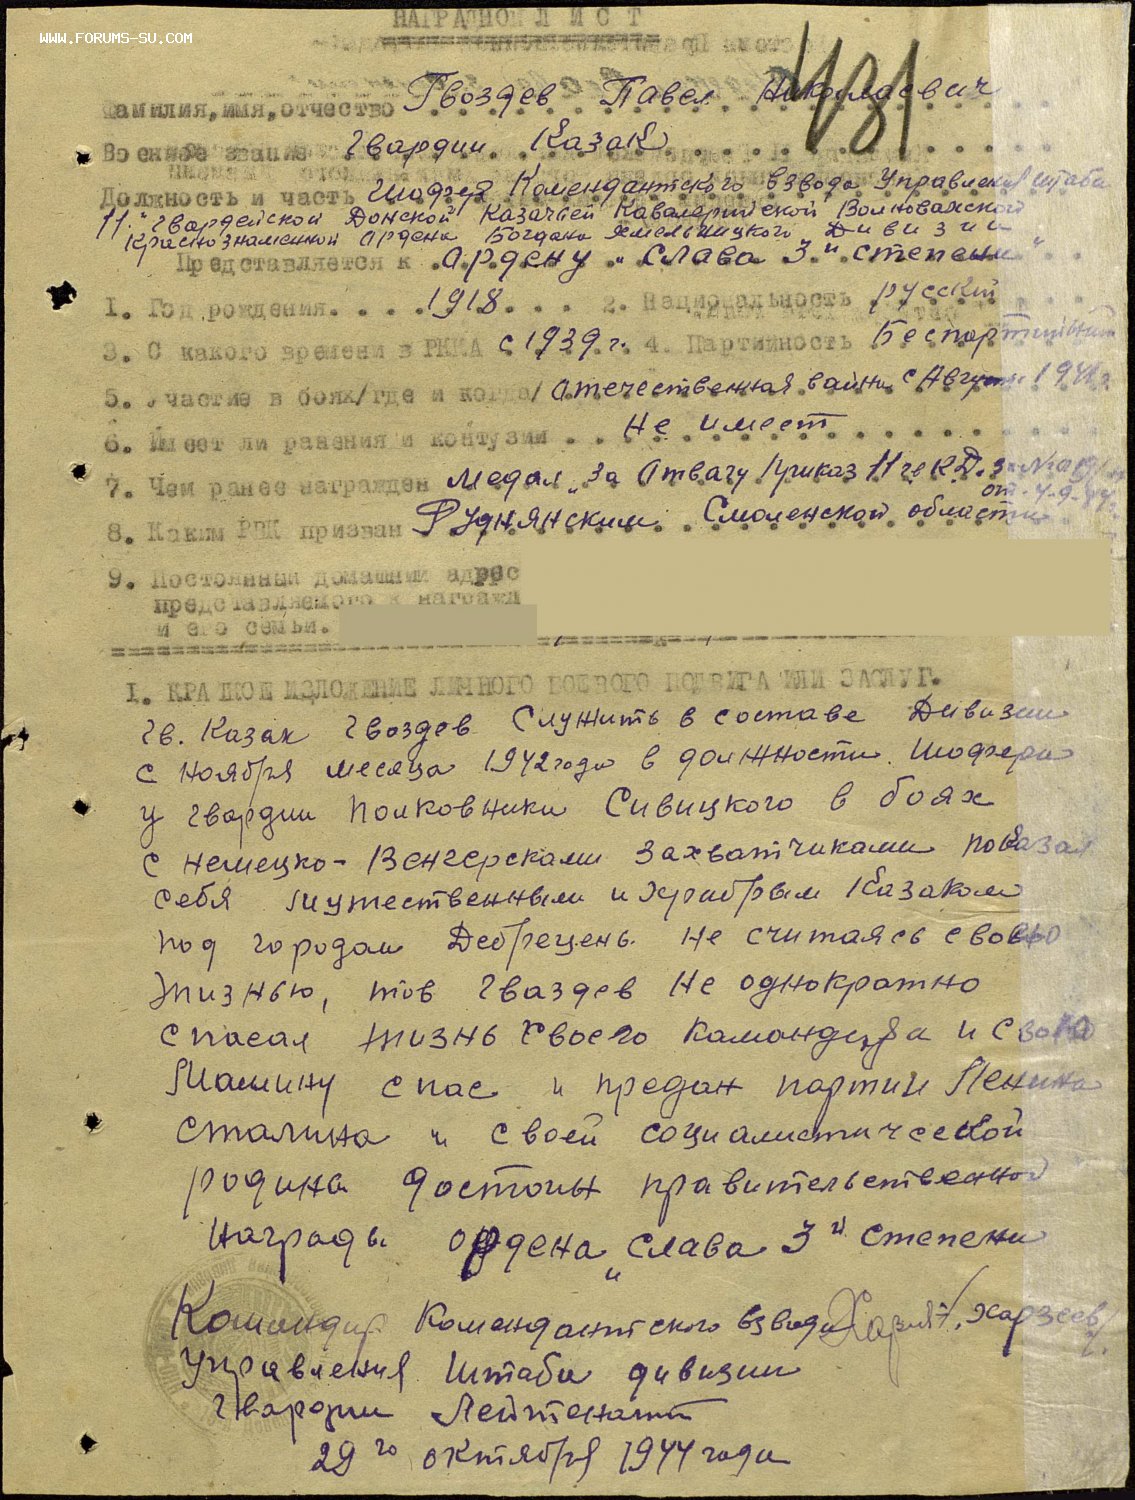 НАГРАДНОЙ ЛИСТ
WWW.FORUMS-SU.COM
481
Фамилия, имя, отчество Гвоздев Павел Николаевич
Военное звание Гвардии Казак
Должность и часть Шофер Комендантского взвода Управления Штаба
11" Гвардейской Донской Казачьей Кавалерийской Волновахской
Краснознаменной Ордена Богдана Хмельницкого Дивизии
Представляется к Ордену "Слава 3й степени"
1. Год рождения. 1918 2. Национальность русский
3. С какого времени в РККА с 1939 г. 4. Партийность Беспартийный
5. Участие в боях/где и когда/ Отечественная война с Августа 1941 г.
6. Имеет ли ранения и контузии Не имеет
7. Чем ранее награжден Медал "За Отвагу Приказ 11 гв К.Д.
от 4.9.44 г.
8. Каким РВК призван Руднянским Смоленской области
9. Постоянный домашний адрес
представляемого к награжд
и его семьи.
I. КРАТКОЕ ИЗЛОЖЕНИЕ ЛИЧНОГО БОЕВОГО ПОДВИГА ИЛИ ЗАСЛУГ.
Гв. Казак Гвоздев Служить в составе Дивизии
с Ноября месяца 1942 года в должности Шофера
у Гвардии Полковники Сивицкого в боях
с немецко-Венгерсками захватчиками показал
себя мужественным и храбрым Казаком
под городам Дебрецень не считаясь свою
жизнью, тов Гваздев не однократно
спасал жизнь своего камандира и свою
Машину спас и предан партии Ленина
Сталина и своей социалистической
родина достоин правительственной
награды ордена "Слава 3й степени
Командир Комендантского взвода /Харзеев/
Управления Штаба дивизии
Гвардии Лейтенант
29го октября 1944 года